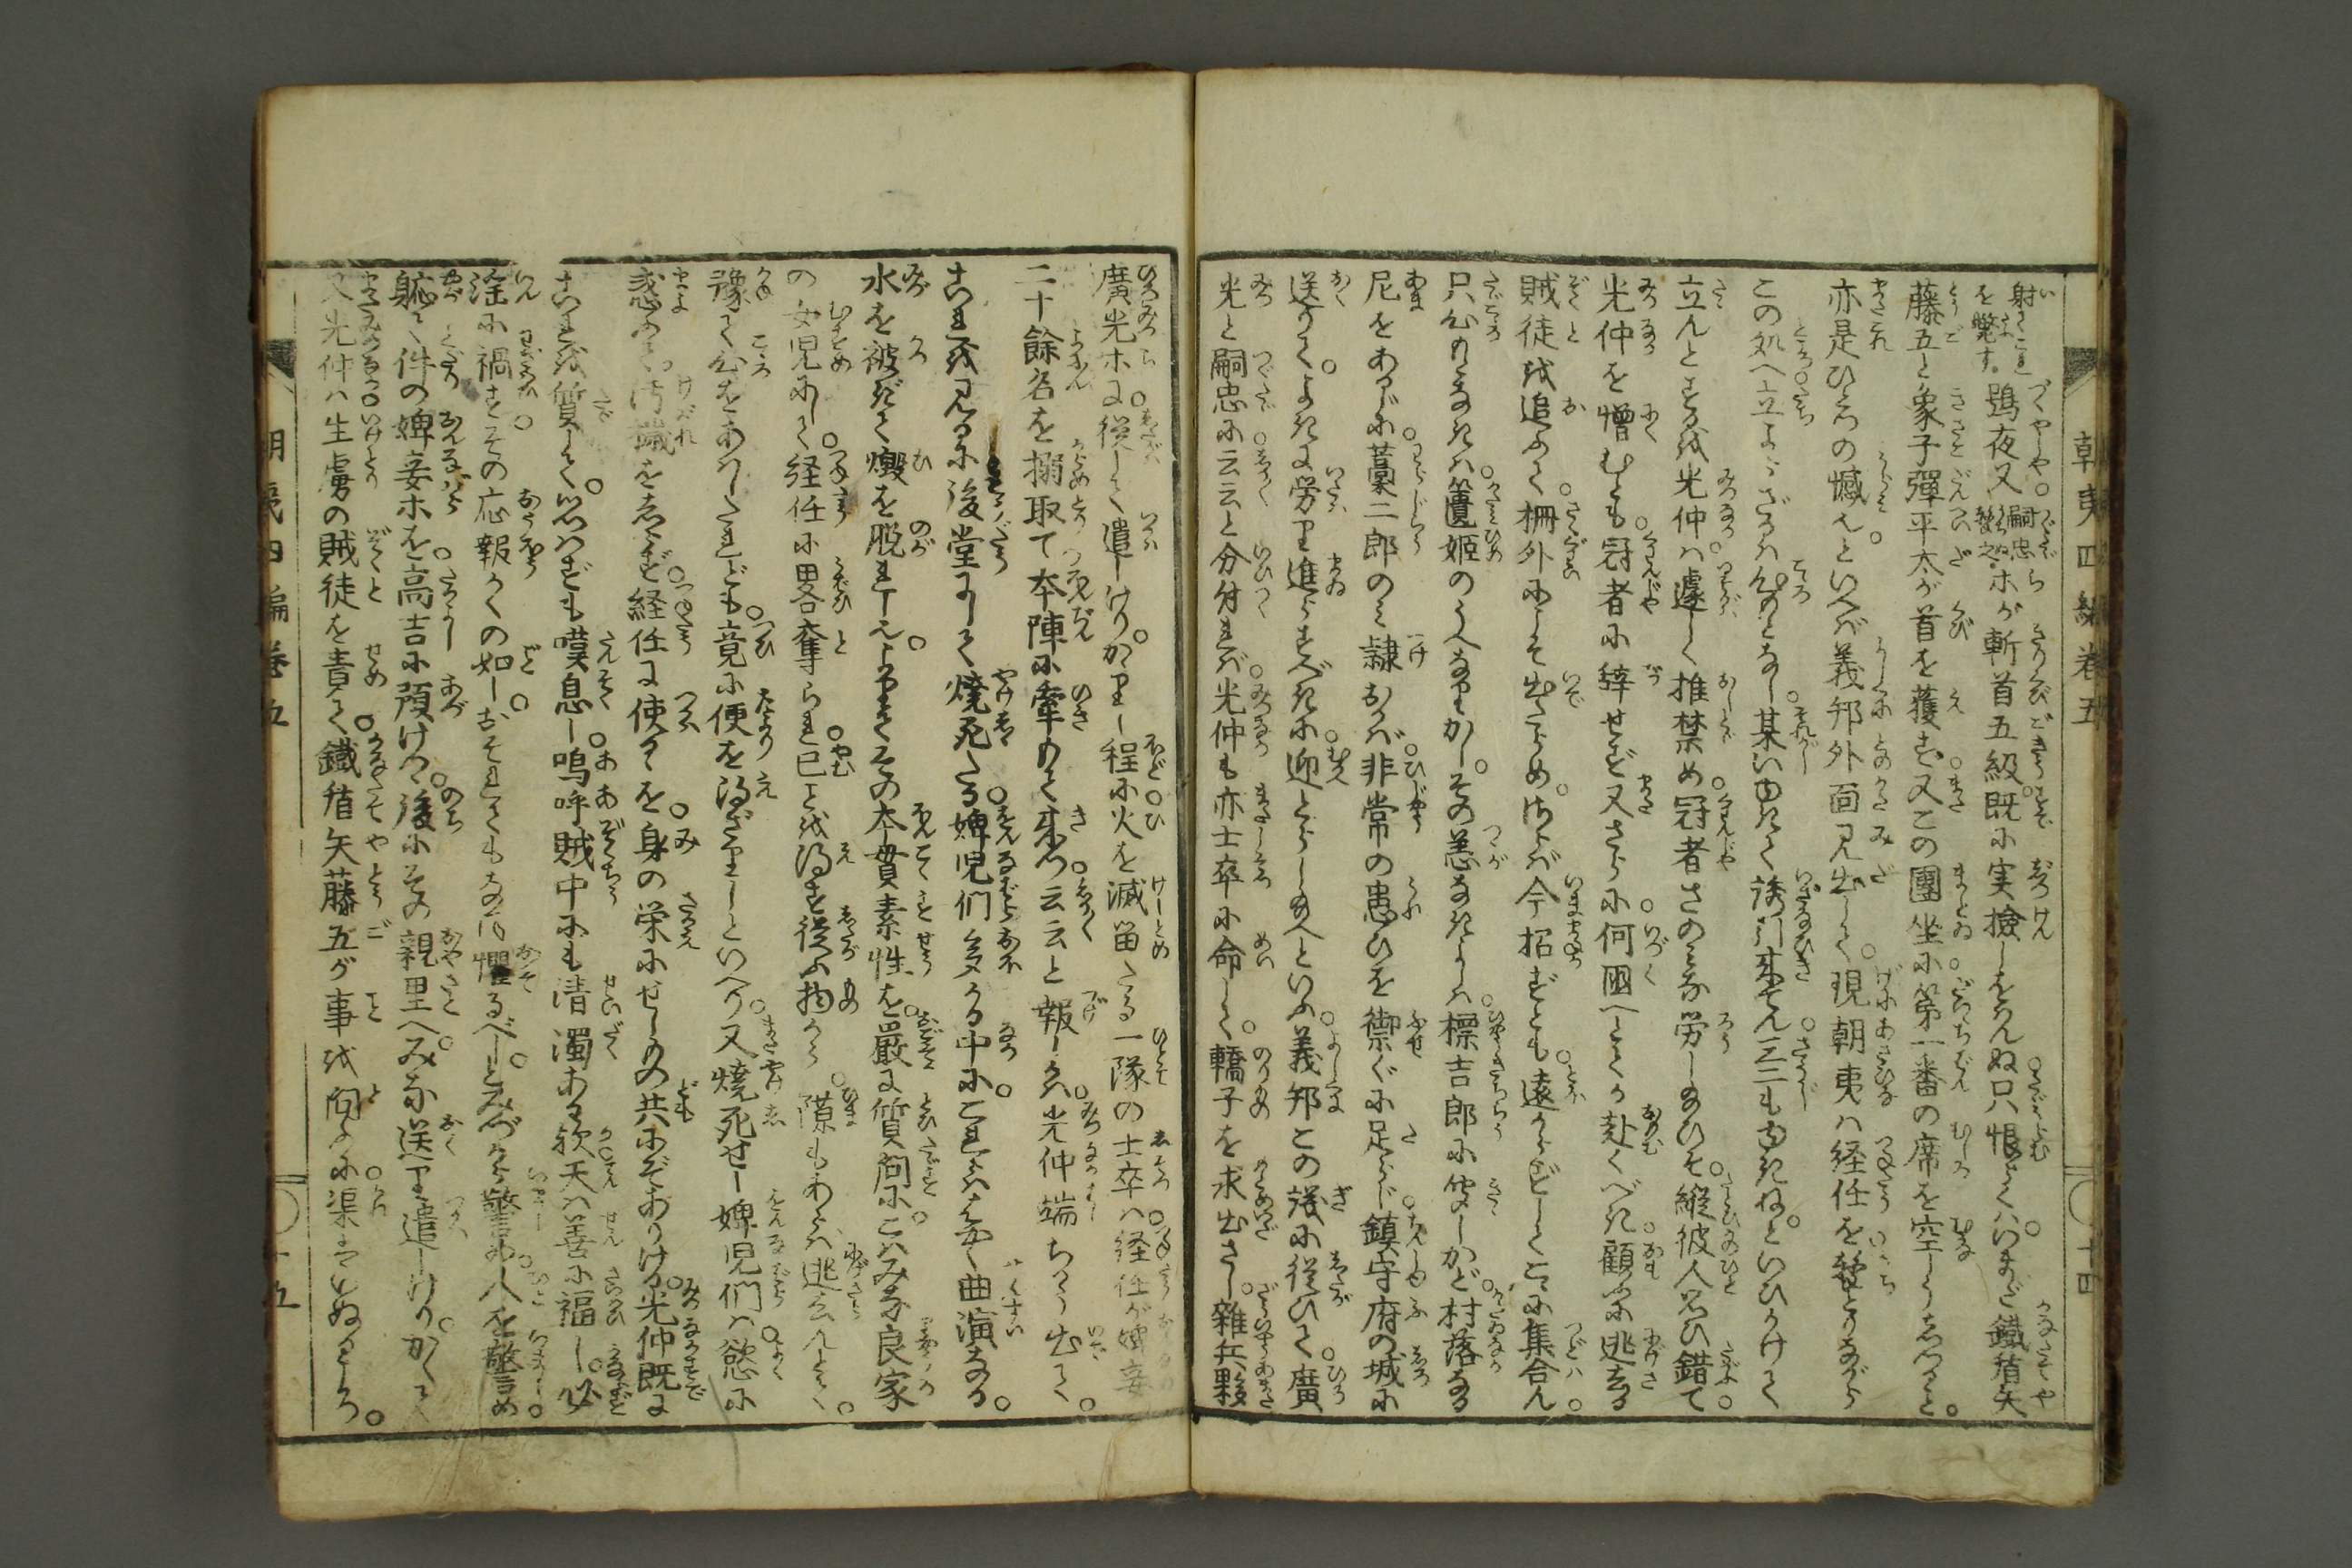 朝夷四編巻五 十四
射てこれを斃す。鵄夜又 嗣忠 ホが斬首五級。既に実撿しをはんぬ只恨らくは。いまだ鐵楯矢
藤五と象子彈平太が首を獲ず。又この團坐に第一番の席を空しうしつること。
亦是ひとつの憾也といへば義邦外面見出して。現朝夷は経任を撃とりながら
この処へ立よらざるは心のとなし。某いゆきて誘引来てん三二もゆきねといひかけて
立んとするを光仲は。遽しく推禁め。冠者さのみな労し給ひそ。縦彼人思ひ錯て
光仲を憎むも。冠者に辞せず又さらに。何国へとてか赴くべき。顧ふに逃去る
賊徒を追ふて。柵外にこそ出たらめ。されば今招ずとも。遠からずしてこゝに集合ん。
只心のゝなきは。篋姫のうへなりかし。その恙なきよしは。標吉郎に聞しかど。村落なる
尼をあるじに。藁二郎のみ隷おかば。非常の患ひを禦ぐに足らじ。鎮守府の城に
送りて。よきに労り進らすべきに。迎とらし給へといふ。義邦この議に従ひて。廣
光と嗣忠に云云と分付れば。光仲も亦士卒に命して。轎子を求出さし。雑兵夥
廣光ホに。従して遣しけり。かゝりし程に。火を滅畄たる一隊の士卒は。経任が婢妾
二十餘名を搦取て本陣に牽もて来つ。云云と報しかば。光仲端ちかう出て。
これを見るに後堂にして焼死たる。婢児們多かる中に。これらはなく曲演なる。
水を被ぎて燬を脱れしならん。その本貫素性を。厳に質問に。こはみな良家
の女児にして。経任に畧奪られ。已ことを得ず従ふものから。隙もあらば逃去んとて。
豫て心をあはしたれども。竟に便を得ざりしといへり。又焼死せし婢児們は。慾に
惑ふて。汚穢をしらず。経任に使るゝを。身の栄にせしもの共にぞありける。光仲既に
これを質して。思はずも嘆息し。嗚呼賊中にも清濁あり。天は善に福し。必
淫に禍す。その応報かくの如し。おそれてもなほ懼るべしとみづから警め。人を警め
躮て件の婢妾ホを。高吉に預けつ。後にその親里へみな送り遣しけり。かくて
又光仲は生虜の賊徒を責て。鐵楯矢藤五が事を問ふに。渠はいぬるころ。
朝夷四編巻五 十五